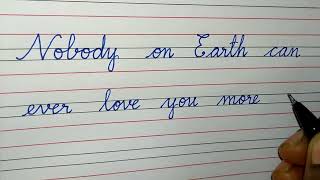 Nobody on Earth can
ever love you more